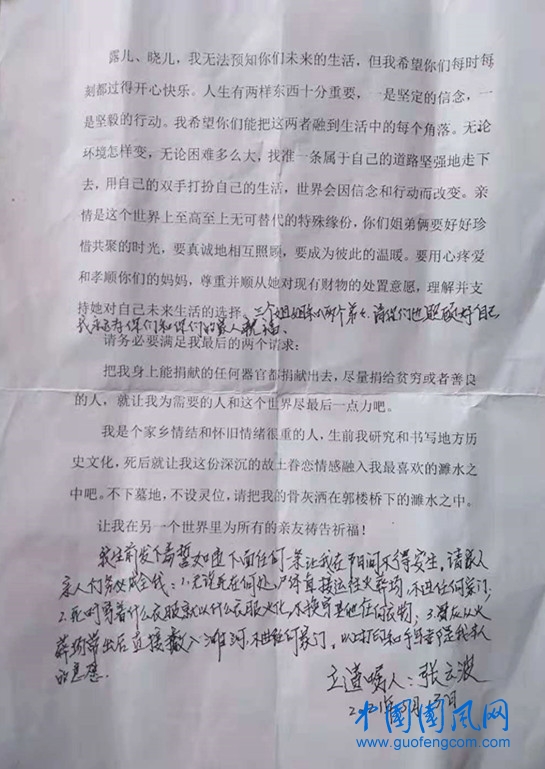 露儿、晓儿，我无法预知你们未来的生活，但我希望你们每时每
刻都过得开心快乐。人生有两样东西十分重要，一是坚定的信念，一
是坚毅的行动。我希望你们能把这两者融到生活中的每个角落。无论
环境怎样变，无论困难多么大，找准一条属于自己的道路坚强地走下
去，用自己的双手打扮自己的生活，世界会因信念和行动而改变。亲
情是这个世界上至高至上无可替代的特殊缘份，你们姐弟俩要好好珍
惜共聚的时光，要真诚地相互照顾，要成为彼此的温暖。要用心疼爱
和孝顺你们的妈妈，尊重并顺从她对现有财物的处置意愿，理解并支
持她对自己未来生活的选择。三个姐姐和两个弟弟，请你们也照顾好自己
我永远为你们和你们的家人祝福。
请务必要满足我最后的两个请求：
把我身上能捐献的任何器官都捐献出去，尽量捐给贫穷或者善良
的人，就让我为需要的人和这个世界尽最后一点力吧。
我是个家乡情结和怀旧情绪很重的人，生前我研究和书写地方历
史文化，死后就让我这份深沉的故土眷恋情感融入我最喜欢的濉水之
中吧。不下墓地，不设灵位，请把我的骨灰洒在郭楼桥下的濉水之中。
让我在另一个世界里为所有的亲友祷告祈福！
我生前发下毒誓如违下面任何一条让我在阴间不得安生。请家人
亲人们务必成全我：1.无论死在何处，尸体直接运往火葬场，不进任何家门；
2.死时穿着什么衣服就以什么衣服火化，不换穿其他任何衣物；3.骨灰从火
葬场带出后直接撒入濉河，不进任何家门。以上打印和手写都是我本人
的意愿。
立遗嘱人：张云波
2021年5月3日
中国国风网
www.guofengcom.com